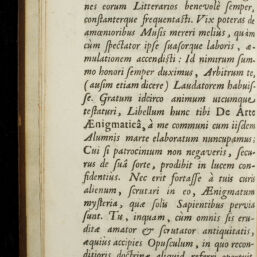 nes eorum Litterarios benevolè semper,
conſtanterque frequentaſti. Vix poteras de
amœnioribus Muſis mereri meliùs, quàm
cùm ſpectator ipſe ſuaſorque laboris, æ-
mulationem accendiſti: Id nimirum ſum-
mo honori ſemper duximus, Arbitrum te,
(auſim etiam dicere) Laudatorem habuiſ-
ſe. Gratum idcirco animum utcumque
teſtaturi, Libellum hunc tibi De Arte
Ænigmaticâ, à me communi cum iiſdem
Alumnis marte elaboratum nuncupamus;
Cui ſi patrocinium non negaveris, ſecu-
rus de ſuâ ſorte, prodibit in lucem con-
fidentiùs. Nec erit fortaſſe à tuis curis
alienum, ſcrutari in eo, Ænigmatum
myſteria, quæ ſolis Sapientibus pervia
ſunt. Tu, inquam, cùm omnis ſis eru-
ditæ amator & ſcrutator antiquitatis,
æquius accipies Opuſculum, in quo recon-
ditioris doctrinæ aliquid referri oportuit